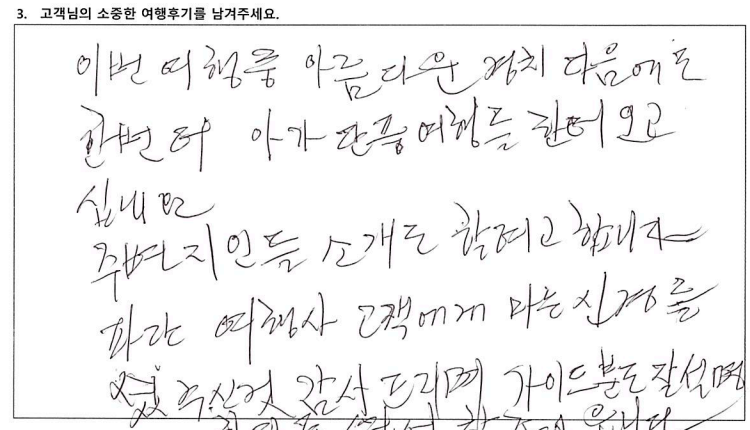 3. 고객님의 소중한 여행후기를 남겨주세요.
이번 여행중 아름다운 경치 다음에도
한번 더 아가 단풍여행을 한더 오고
십네요
주변지인들 소개도 할려고 합니다
파란 여행사 고객에게 마는 신경을
써 주신것 감사드리며 가이드분도 잘설명